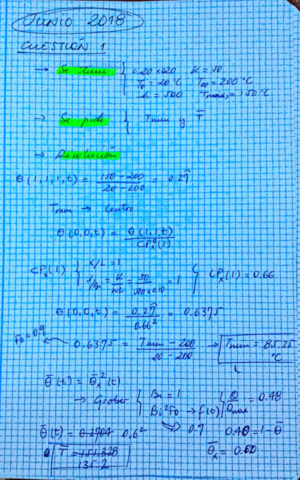 JUNIO 2018
CUESTIÓN 1
→ Se tiene { 0.20 x 0.20 K = 50
T₀ = 20 °C T∞ = 200 °C
h = 500 Tmax = 150 °C
→ Se pide { Tmin y T̄
→ Resolución
θ(1,1,t) = (150 - 200)/(20 - 200) = 0.27̂
Tmin → centro
θ(0,0,t) = θ(1,1,t)/CPₓ²(1)
CPₓ(1) { x/L = 1
1/Bi = K/hL = 50/(500·0.10) = 1 { CPₓ(1) = 0.66
θ(0,0,t) = 0.27̂/0.66² = 0.6375
Fo = 0.9 ← 0.6375 = (Tmin - 200)/(20 - 200) → Tmin = 85.25 °C
θ̄(t) = θ̄ₓ²(t)
→ Grober { Bi = 1
Bi²Fo → f(t) { Q/Qmax = 0.48
0.9 0.40 = 1 - θ̄
θ̄(t) = 0.2704 0.6²
θ̄ₓ = 0.60
T̄ = 151.328
135.2